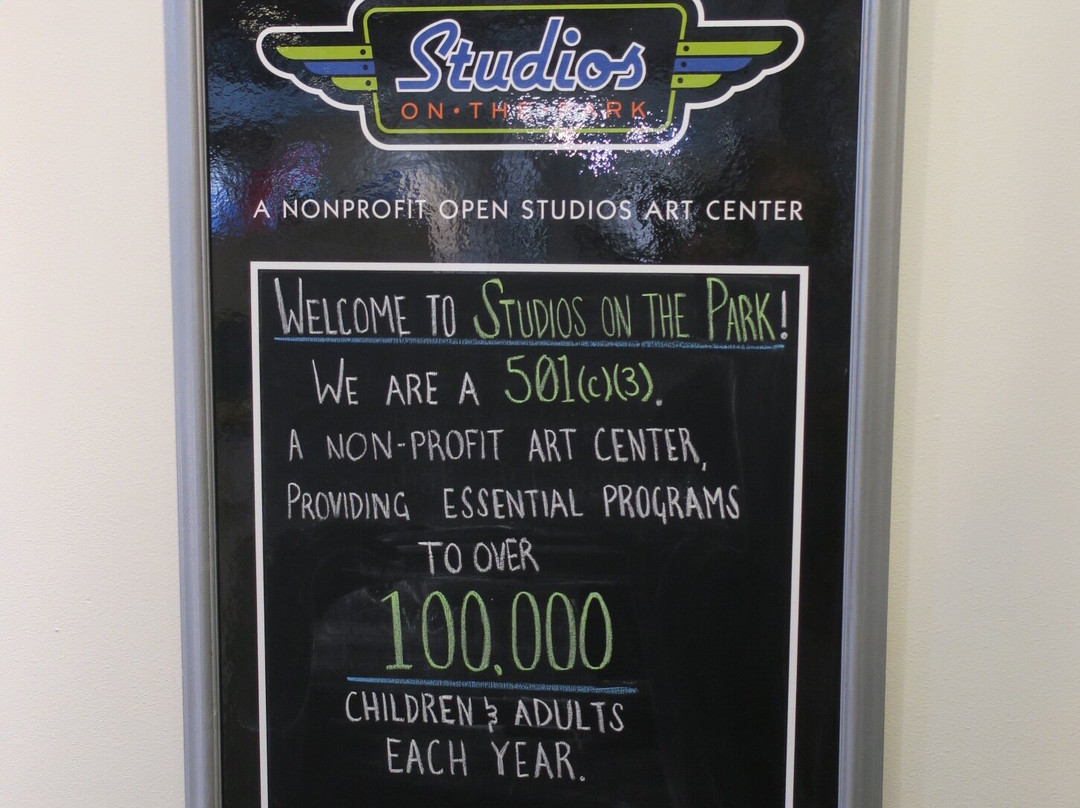 Studios
ON • THE • PARK
A NONPROFIT OPEN STUDIOS ART CENTER
WELCOME TO STUDIOS ON THE PARK!
WE ARE A 501(c)(3).
A NON-PROFIT ART CENTER,
PROVIDING ESSENTIAL PROGRAMS
TO OVER
100,000
CHILDREN & ADULTS
EACH YEAR.